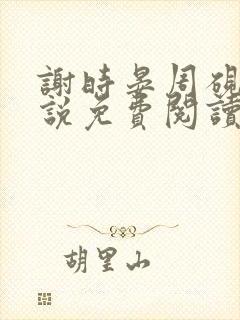 謝時晏周硯
說免費閱讀
胡里山